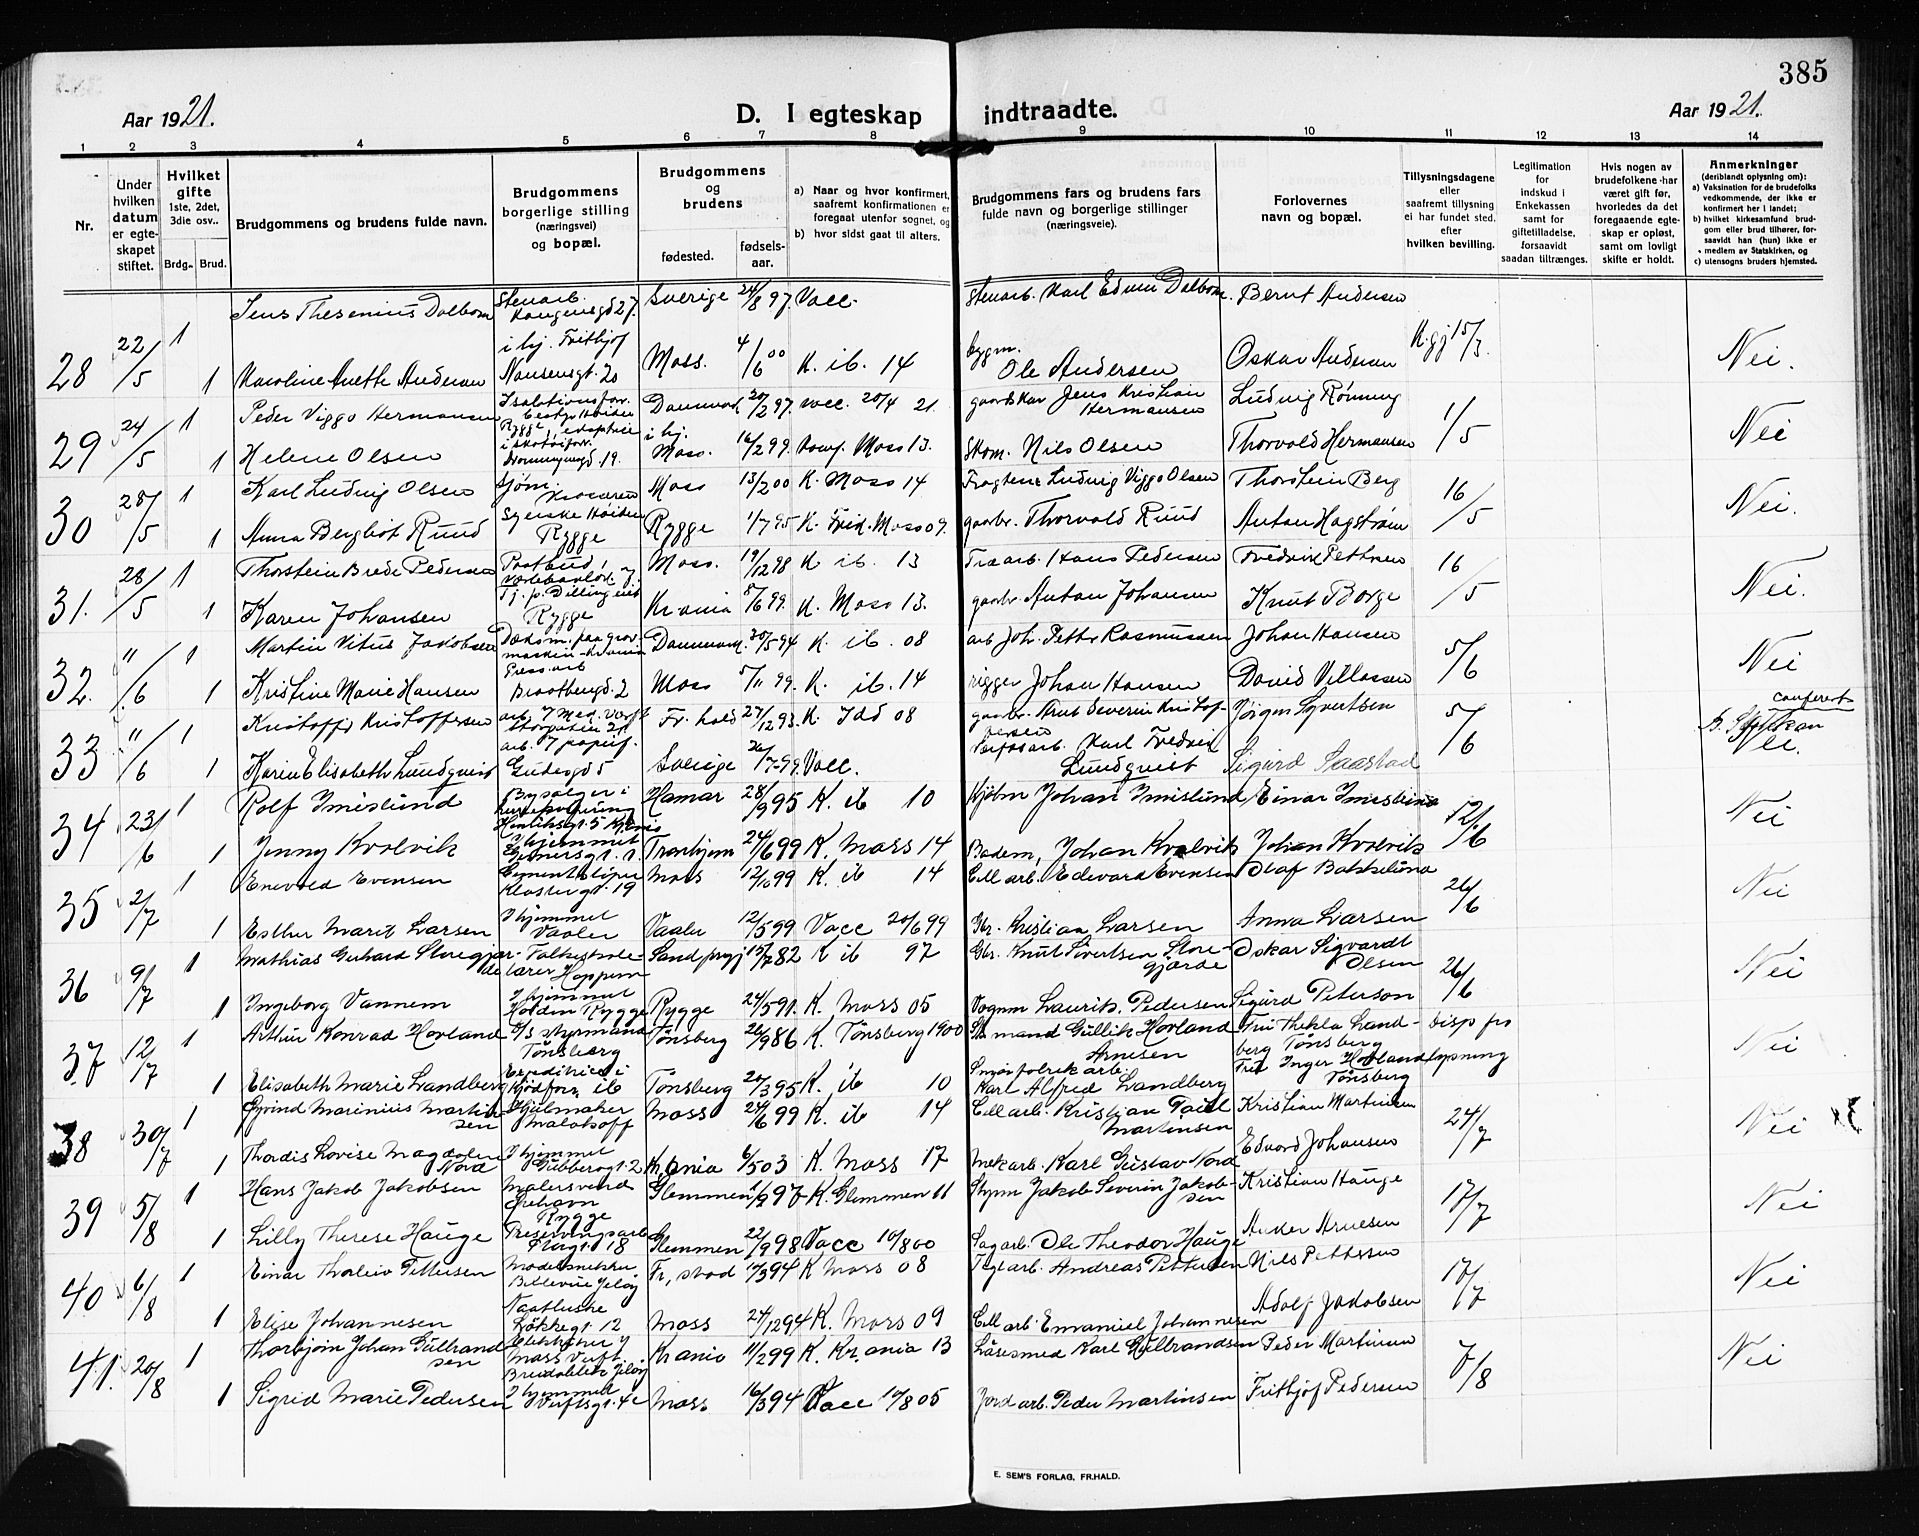 385
Aar 1921.
D. I egteskap indtraadte.
Aar 1921.
1 2 3 4 5 6 7 8 9 10 11 12 13 14
Nr.
Under hvilken datum er egteskapet stiftet.
Hvilket gifte 1ste, 2det, 3die osv..
Brdg. Brud.
Brudgommens og brudens fulde navn.
Brudgommens borgerlige stilling (næringsvei) og bopæl.
Brudgommens og brudens
fødested. fødselsaar.
a) Naar og hvor konfirmert, saafremt konfirmationen er foregaat utenfor sognet, og
b) hvor sidst gaat til alters.
Brudgommens fars og brudens fars fulde navn og borgerlige stillinger (næringsveie).
Forlovernes navn og bopæl.
Tillysningsdagene eller saafremt tillysning ei har fundet sted, efter hvilken bevilling.
Legitimation for indskud i Enkekassen samt for giftetilladelse, forsaavidt saadan tiltrænges.
Hvis nogen av brudefolkene har været gift før, hvorledes da det foregaaende egteskap er opløst, samt om lovligt skifte er holdt.
Anmerkninger (deriblandt oplysning om):
a) Vaksination for de brudefolks vedkommende, der ikke er konfirmert her i landet;
b) hvilket kirkesamfund brudgom eller brud tilhører, forsaavidt han (hun) ikke er medlem av Statskirken, og
c) utensogns bruders hjemsted.
28 22/5 1 Jens Thesenius Dalbom Stenarb. Kongensgd 27. Sverige 24/8 97. Vacc. Stenarb. Karl Edvin Dalbom. Bernt Andersen K.gj 15/3. Nei.
1 Karoline Anette Andersen i hj. Frithjof Nansensgt. 20 Moss. 4/6 00 K. ib. 14 bygm. Ole Andersen Oskar Andersen
29 24/5 1 Peder Viggo Hermansen Danmark 20/2 97. vacc. 20/4 21. gaardskar Jens Kristian Hermansen Ludvig Rønning 1/5 Nei
1 Helene Olsen Dronningensgd. 19. Moss. 16/2 99. Konf. Moss 13. Skom. Nils Olsen Thorvald Hermansen
30 28/5 1 Karl Ludvig Olsen Sjøm. Moss 13/2 00 K. Moss 14 Ludvig Viggo Olsen Thorstein Berg 16/5 Nei.
1 Anna Bergliot Ruud Rygge Rygge 1/7 95 K. Frid. Moss 09. gaardbr. Thorvald Ruud Anton Hagstrøm
31. 28/5 1 Thorstein Brede Pedersen Postbud, Moss. 19/12 98 K ib. 13 Træarb. Hans Pedersen Fredrik Pettersen 16/5 Nei.
1 Karen Johansen Tj. p. Dilling Rygge Krania 8/6 99. K. Moss 13. gaardbr. Anton Johansen Knut Borge
32. "/6 1 Martin Vitus Jakobsen Danmark. 30/5 94 K. ib. 08 arb Joh. Petter Rasmussen Johan Hansen 5/6 Nei
1 Kristine Marie Hansen Pressarb Braatbengd. 2 Moss 5/11 99. K. ib. 14 rigger Johan Hansen David Villassen
33 "/6 1 Kristoffer Kristoffersen arb. 7 Mek. Verft Storgaten 21. Fr. hald 27/12 93. K. Idd 08 gaardbr. Knut Severin Kristoffersen Jørgen Syvertsen 5/6 Nei.
1 Karin Elisabeth Lundqvist arb. 7 papirf. Gudesgd 5 Sverige 26/7 99. Vacc. Karl Fredrik Lundqvist Sigurd Saastad
34 23/6 1 Rolf Imislund Henriksgt. 5 Kr.ania Hamar 28/9 95 K. ib 10 Kjøbm Johan Imislund Einar Imislund 12/6 Nei
1 Jenny Kvalvik I hjemmet Trondhjem 24/6 99 K. Moss 14 Badem, Johan Kvalvik Johan Kvalvik
35 2/7 1 Enevold Evensen Cementstøper Klostergt. 19 Moss 12/10 99 K. ib 14 Cell arb. Edevard Evensen Olaf Bakkelund 26/6 Nei
1 Esther Marit Larsen I hjemmet Vaaler Vaaler 12/5 99 Vacc 20/6 99 Gbr. Kristian Larsen Anna Larsen
36 9/7 1 Mathias Gerhard Storegjærde Folkeskolelærer Hoppern Sandsvøj 15/7 82 K ib 97 Gbr. Knut Sivertsen Storegjærde Oskar Sigvardt Olsen 26/6 Nei
1 Ingeborg Vannem I hjemmet Holden Rygge Rygge 24/5 91. K. Moss 05 Vognm Laurits Pedersen Sigurd Peterson
37. 12/7 1 Arthur Konrad Hovland S/S styrmand Tønsberg Tønsberg 26/9 86 K. Tønsberg 1900 Gullik Hovland Arnesen Fru Thekla Landberg Tønsberg Disp fra lysning Nei
1 Elisabeth Marie Landberg Expeditrice i Kjødforr. ib Tønsberg 20/3 95 K. ib 10 Karl Alfred Landberg Fru Inger Hovland Tønsberg
38 30/7 1 Øyvind Marinius Martinsen Hjulmaker Malakoff Moss 24/6 99 K. ib 14 Cell arb. Kristian Paul Martinsen Kristian Martinsen 24/7 Nei
1 Thordis Lovise Magdalene Nord I hjemmet Gubberogt. 2 Kr.ania 6/5 03 K. Moss 17 Mek arb. Karl Gustav Nord Edvard Johansen
39 5/8 1 Hans Jakob Jakobsen Malersvend Rygge Glemmen 1/2 97 K. Glemmen 11 Jakob Severin Jakobsen Kristian Hauge 17/7 Nei
1 Lilly Therese Hauge Preservingsarb Glemmen 22/9 98 Vacc 10/8 00 Sagarb. Ole Theodor Hauge Anker Arnesen
40 6/8 1 Einar Thorleiv Pettersen Modelsnekker Bellevue Jeløy Fr, stad 17/3 94 K Moss 08 Teglarb. Andreas Pettersen Nils Pettersen 17/7 Nei
1 Elise Johannesen Løkkegt. 12 Moss 24/12 94 K. Moss 09 Cell arb. Emanuel Johannesen Adolf Jakobsen
41. 20/8 1 Thorbjørn Johan Gulbrandsen Moss Verft. Bredablik Jeløy Kr.ania 11/2 99 K. Kr.ania 13 Låsesmed Karl Gulbrandsen Peder Martinsen 7/8 Nei
1 Sigrid Marie Pedersen I hjemmet Verftsgt. 4c Moss 16/3 94 Vacc 10/8 05 Jord arb. Peder Martinsen Frithjof Pedersen
E. SEM'S FORLAG, FR.HALD.